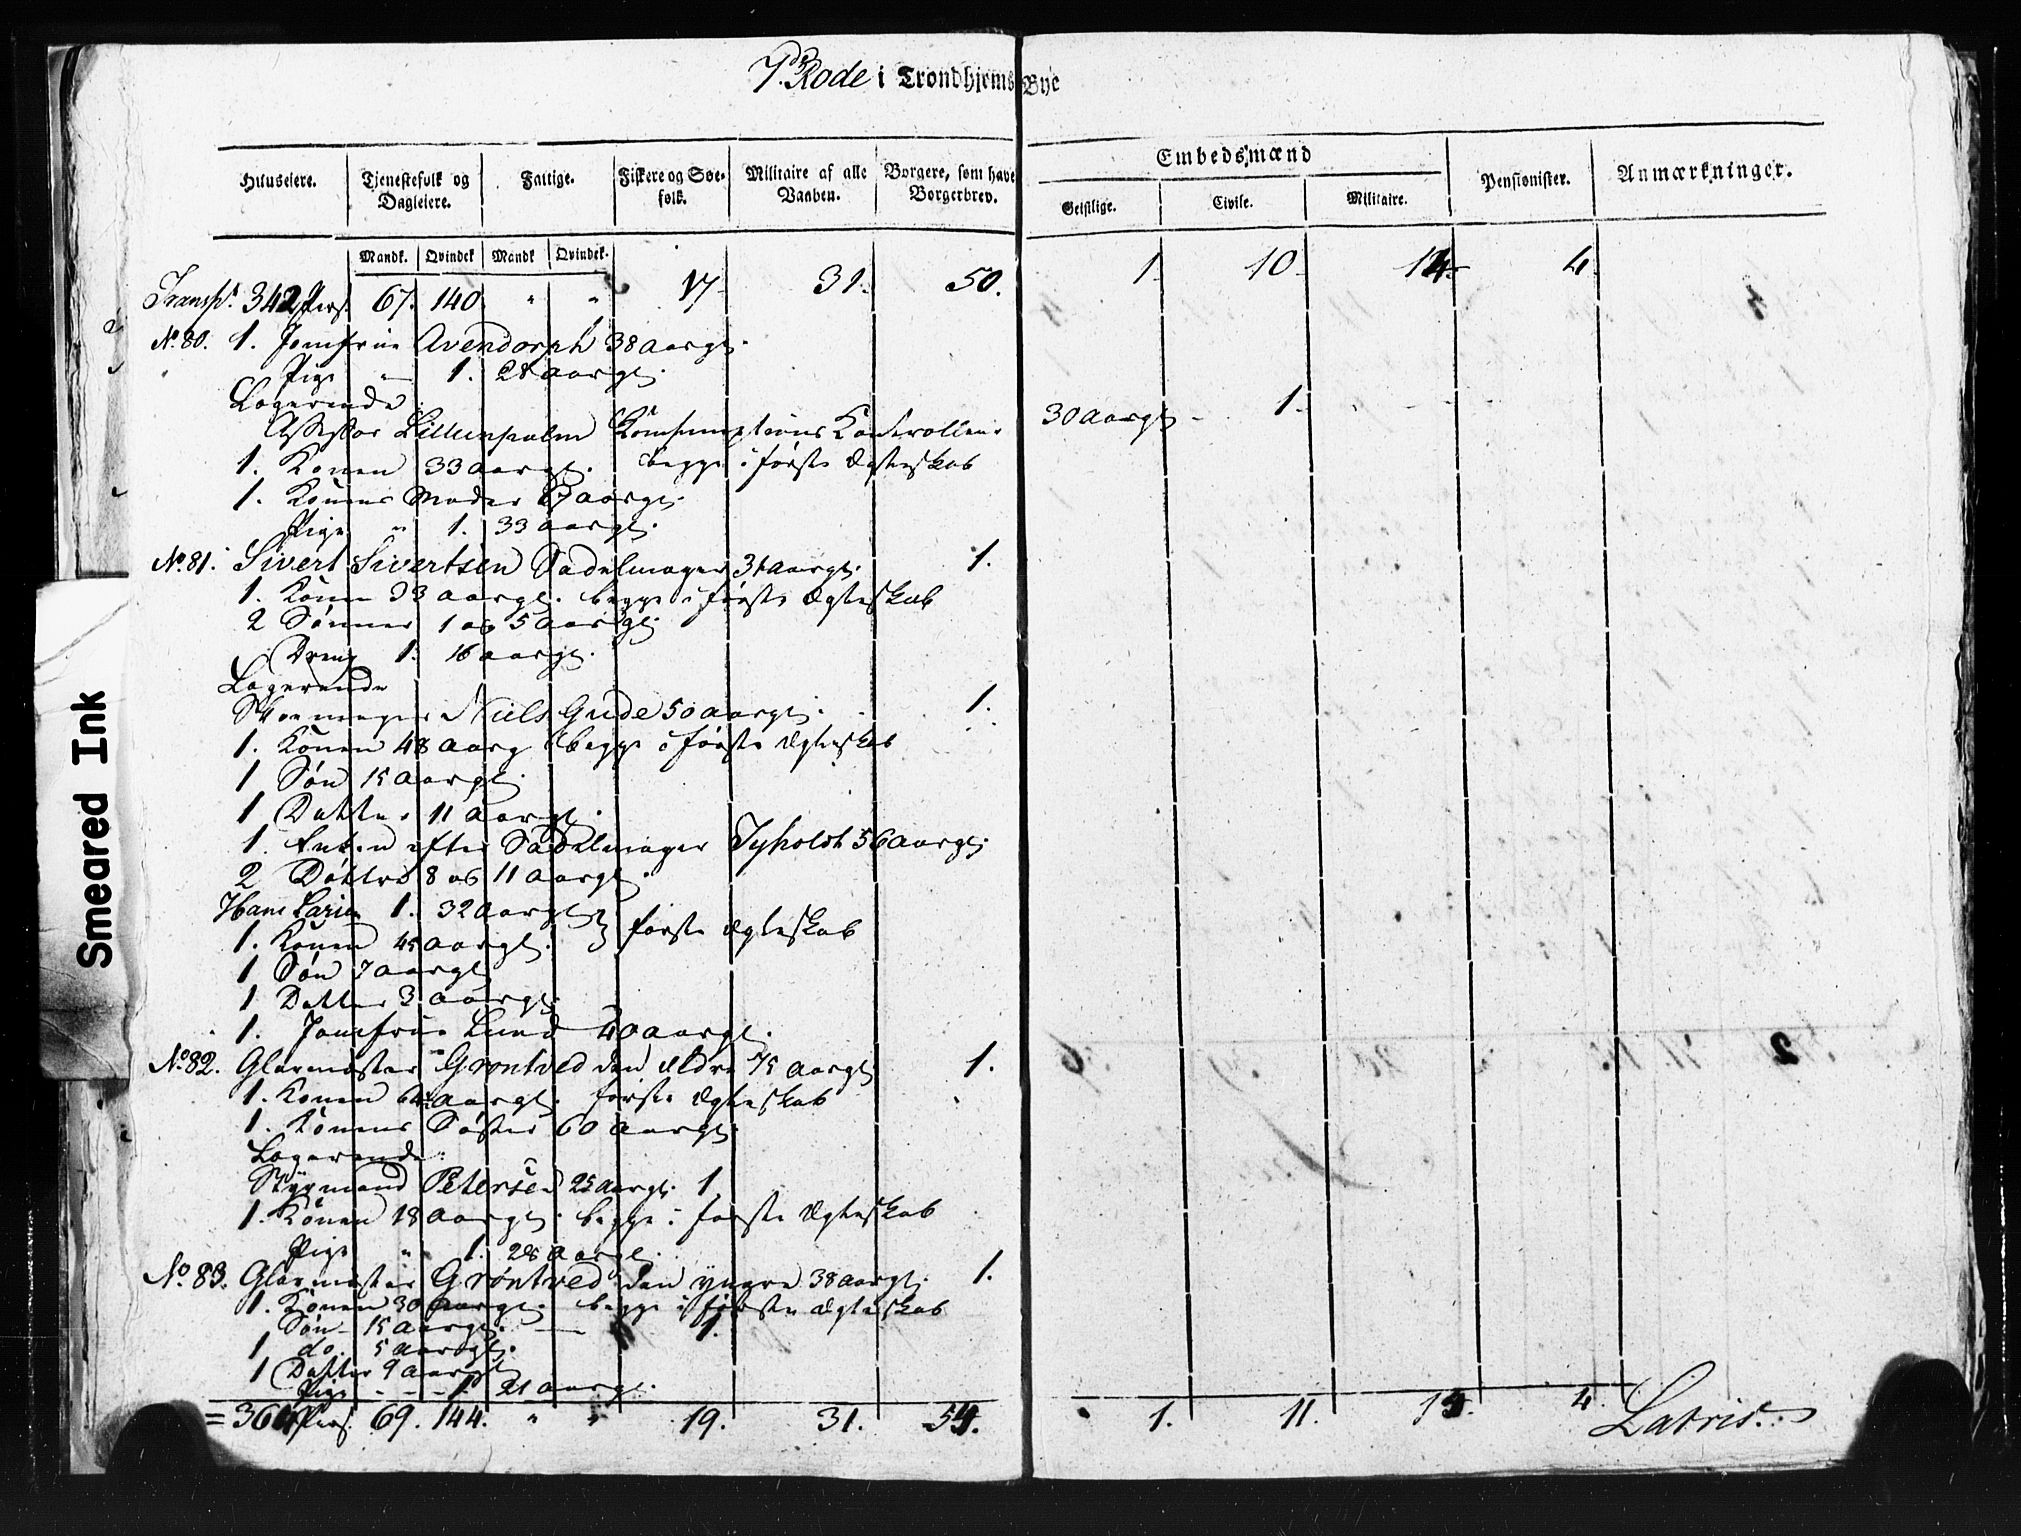 7de Rode i Trondhjems Bye
Embedsmænd
Huuseiere. Tjenestefolk og Dagleiere. Fattige. Fiskere og Søefolk. Militaire af alle Vaaben. Borgere, som have Borgerbrev. Geistlige. Civile. Militaire. Pensionister. Anmærkninger.
Mandk. Qvindek Mandk Qvindek.
Transpt. 342 Pers. 67. 140. " " 17 31. 50. 1. 10. 14. 4.
No. 80. 1. Jomfrue Avendorph 38 aargl.
Pige " 1. 28 aargl.
Logerende
Assessor Lillienpalm Konsumptions Kontrolleur 30 aargl. 1.
1. Konen 33 aargl. begge i første Ægteskab
1. Konens Moder aargl.
Pige " 1. 33 aargl.
No. 81. Sivert Sivertsen Sadelmager 31 aargl. 1.
1. Konen 33 aargl. begge i første Ægteskab
2 Sønner 1 og 5 aargl.
Dreng 1. 16 aargl.
Logerende
Skoemager Niels Gude 50 aargl. 1.
1. Konen 48 aarg begge i første Ægteskab
1 Søn 15 aargl.
1 Datter 11 aargl.
1. Enken efter Sadelmager Tyholdt 56 aargl.
2 Døttre 8 og 11 aargl.
Hans Larsen 1. 32 aargl.
1. Konen 45 aargl. } første Ægteskab
1 Søn 7 aargl
1 Datter 3 aargl.
1. Jomfrue Lund 40 aargl.
No. 82. Glarmester Grøntved den ældre 75 aargl 1.
1. Konen aargl. første Ægteskab
1. Konens Søster 60 aargl.
Logerende
Styrmand Petersen 25 aargl. 1
1. Konen 18 aargl. begge i første Ægteskab
Pige " 1. 28 aargl.
No. 83. Glarmester Grøntved den yngre 38 aargl. 1.
1. Konen 30 aargl. begge i første Ægteskab
Søn 15 aargl. — 1.
1 do. 5 aargl.
1 Datter 9 aargl
Pige - - - 1 21 aargl.
= Pers. 69. 144. " " 19. 31. 54. 1. 11. 4. Latris.
Smeared Ink